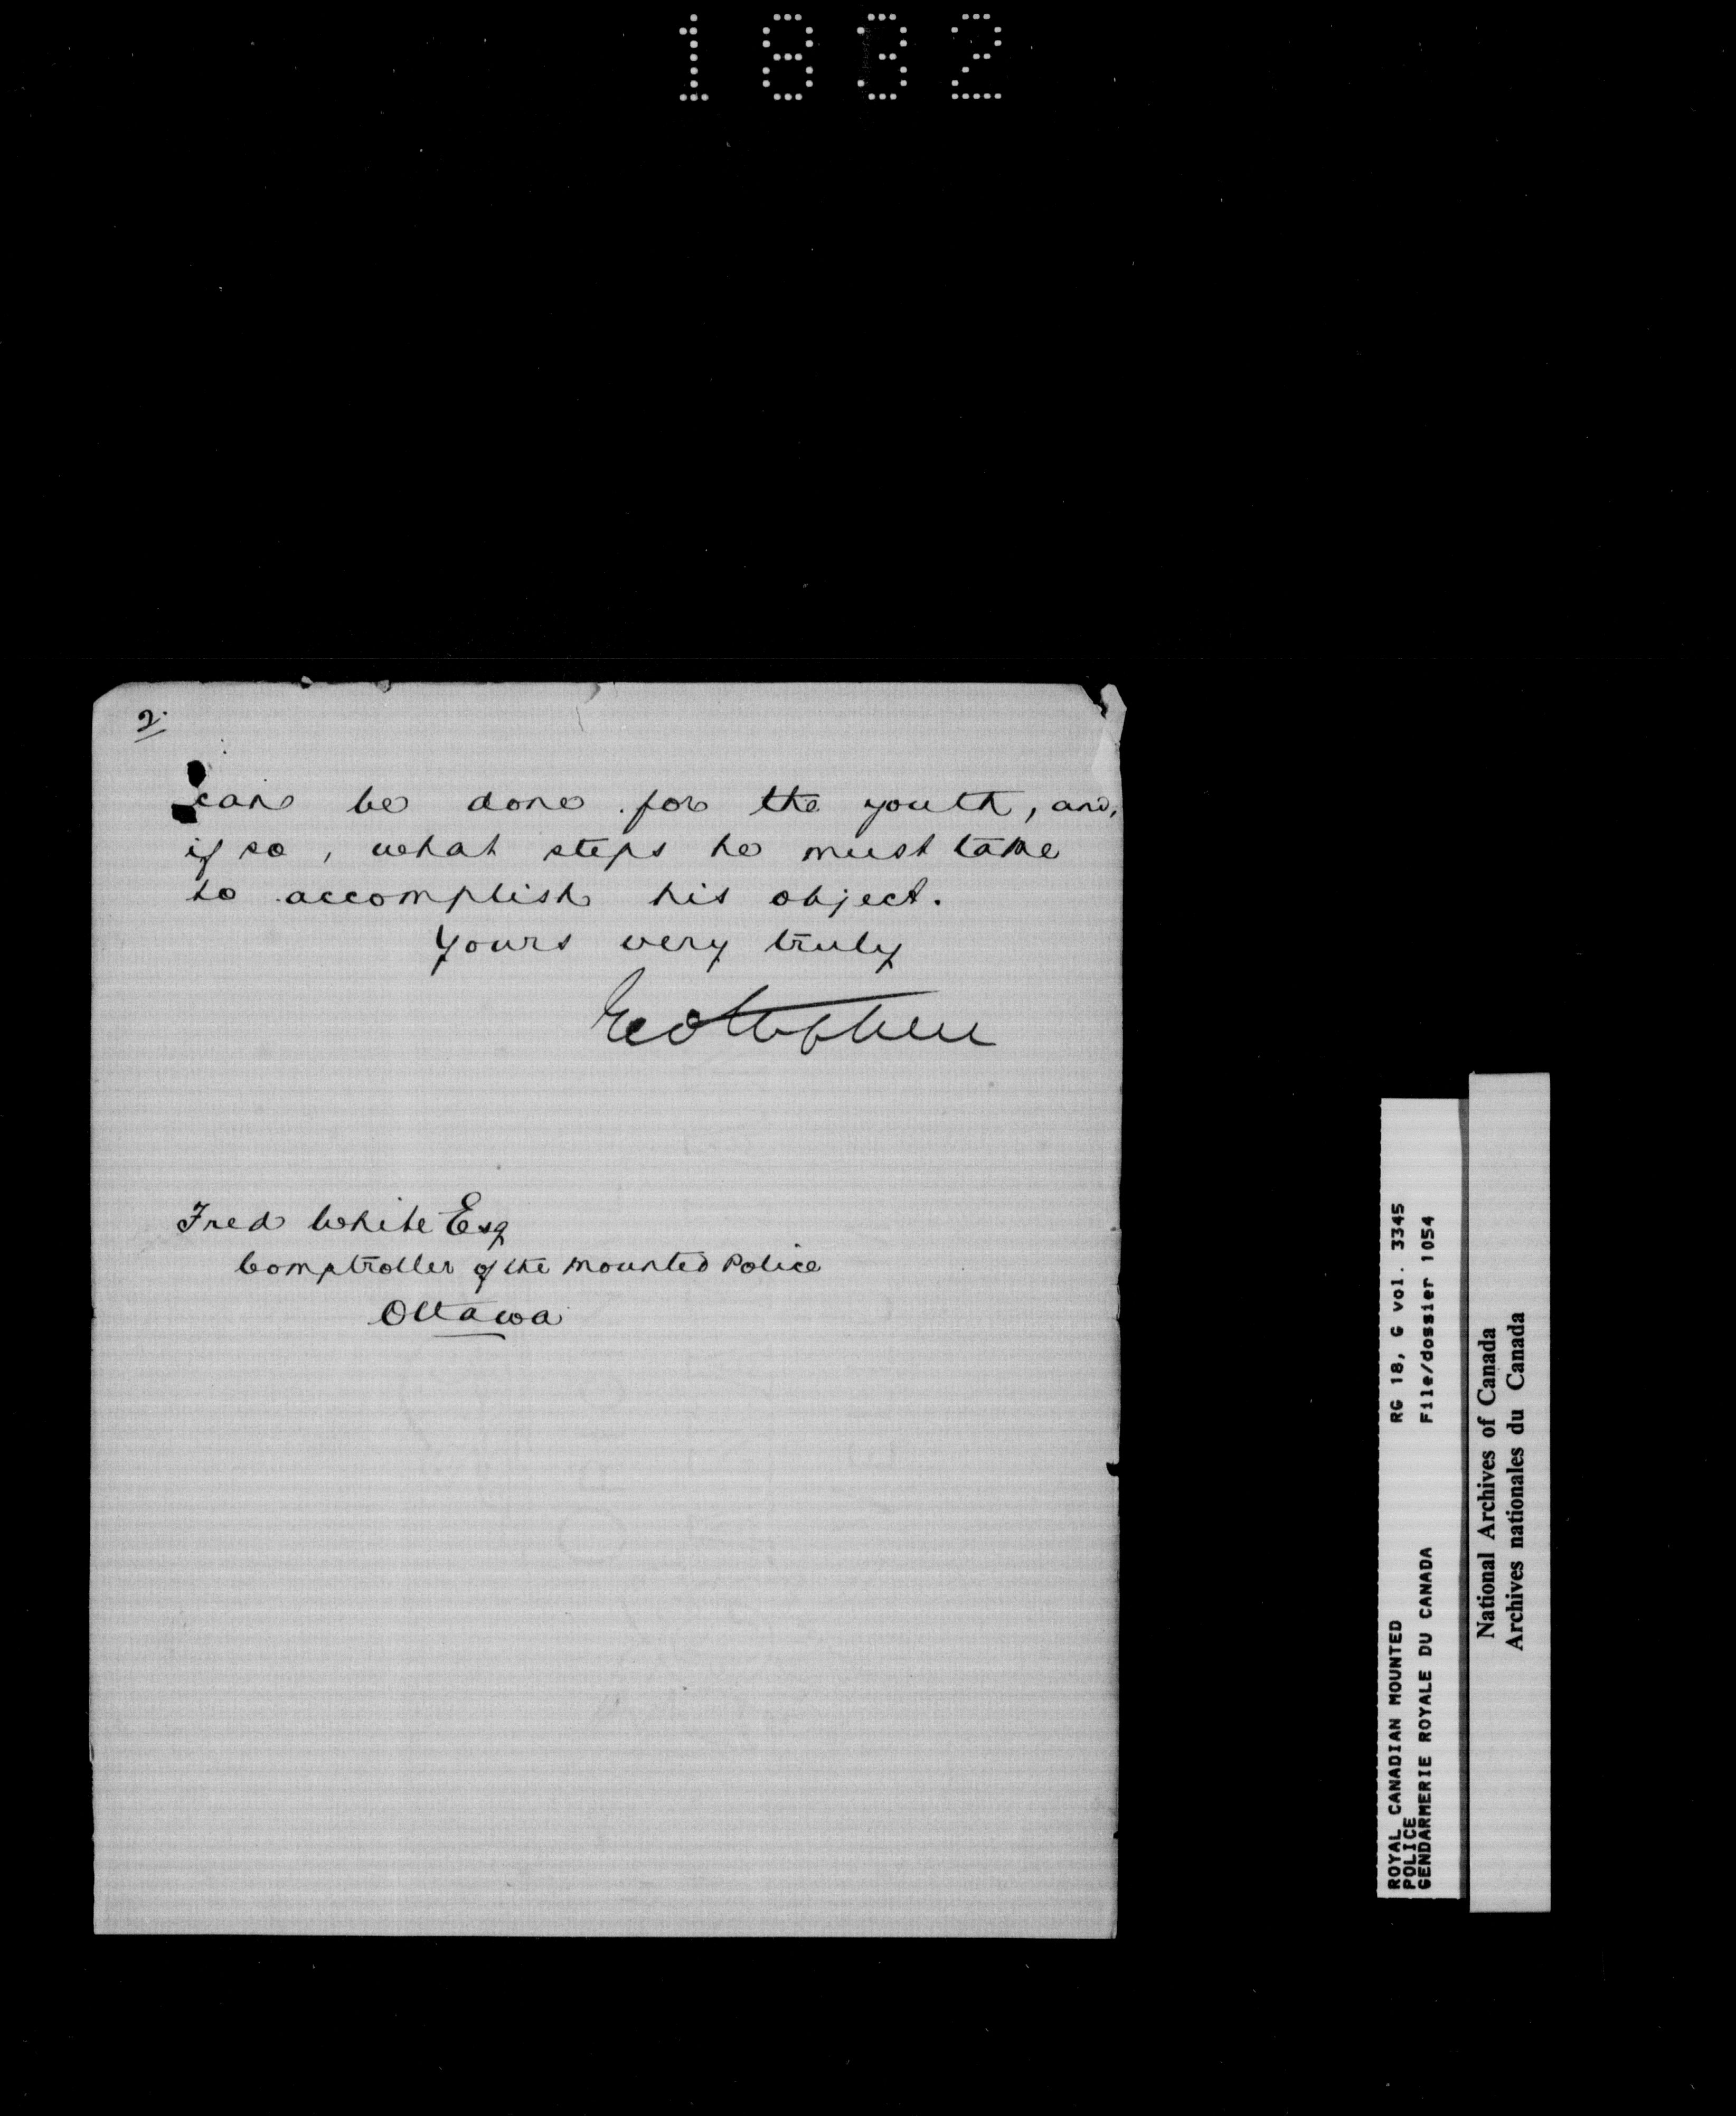 1832
2.
can be done for the youth, and,
if so, what steps he must take
to accomplish his object.
Yours very truly
Geo Stephen
Fred White Esq
Comptroller of the Mounted Police
Ottawa
ROYAL CANADIAN MOUNTED
POLICE
GENDARMERIE ROYALE DU CANADA
RG 18, G vol. 3345
File/dossier 1054
National Archives of Canada
Archives nationales du Canada